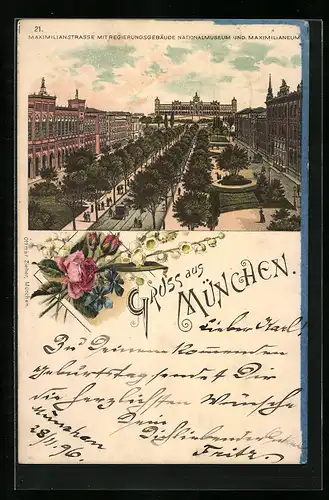 21.
MAXIMILIANSTRASSE MIT REGIERUNGSGEBÄUDE NATIONALMUSEUM UND MAXIMILIANEUM
Ottmar Zieher, München.
GRUSS aus
MÜNCHEN.
Lieber Karl!
Zu Deinem kommenden
Geburtstag sendet Dir
die herzlichsten Wünsche
Dein
Dichliebender
Fritz.
München
96.